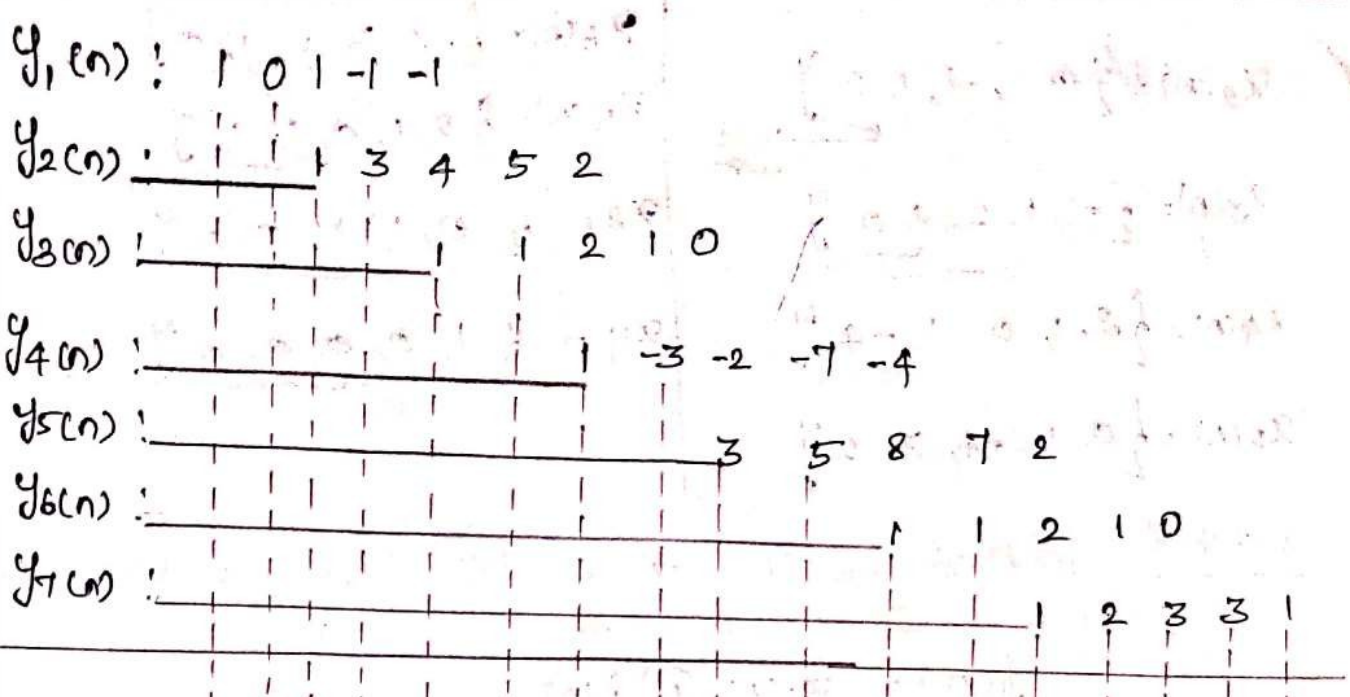 y₁(n) : 1 0 1 -1 -1
y₂(n) : 1 3 4 5 2
y₃(n) : 1 1 2 1 0
y₄(n) : 1 -3 -2 -7 -4
y₅(n) : 3 5 8 7 2
y₆(n) : 1 1 2 1 0
y₇(n) : 1 2 3 3 1